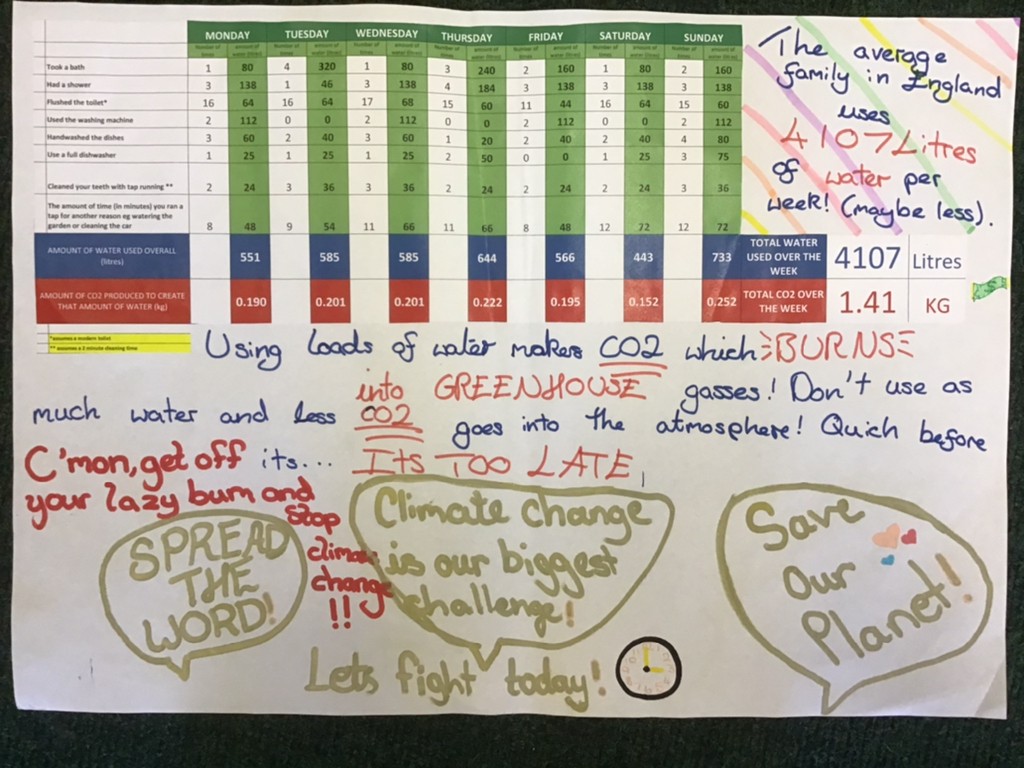 MONDAY TUESDAY WEDNESDAY THURSDAY FRIDAY SATURDAY SUNDAY
Number of times amount of water (litres) Number of times amount of water (litres) Number of times amount of water (litres) Number of times amount of water (litres) Number of times amount of water (litres) Number of times amount of water (litres) Number of times amount of water (litres)
Took a bath 1 80 4 320 1 80 3 240 2 160 1 80 2 160
Had a shower 3 138 1 46 3 138 4 184 3 138 3 138 3 138
Flushed the toilet* 16 64 16 64 17 68 15 60 11 44 16 64 15 60
Used the washing machine 2 112 0 0 2 112 0 0 2 112 0 0 2 112
Handwashed the dishes 3 60 2 40 3 60 1 20 2 40 2 40 4 80
Use a full dishwasher 1 25 1 25 1 25 2 50 0 0 1 25 3 75
Cleaned your teeth with tap running ** 2 24 3 36 3 36 2 24 2 24 2 24 3 36
The amount of time (in minutes) you ran a
tap for another reason eg watering the
garden or cleaning the car 8 48 9 54 11 66 11 66 8 48 12 72 12 72
AMOUNT OF WATER USED OVERALL
(litres) 551 585 585 644 566 443 733
TOTAL WATER
USED OVER THE
WEEK
4107 Litres
AMOUNT OF CO2 PRODUCED TO CREATE
THAT AMOUNT OF WATER (kg) 0.190 0.201 0.201 0.222 0.195 0.152 0.252
TOTAL CO2 OVER
THE WEEK
1.41 KG
*assumes a modern toilet
** assumes a 2 minute cleaning time
The average
family in England
uses
4107 Litres
of water per
week! (maybe less).
Using loads of water makes CO2 which BURNS
into GREENHOUSE gasses! Don't use as
much water and less CO2 goes into the atmosphere! Quich before
its... ITs TOO LATE
C'mon, get off
your lazy bum and
Stop
climate
change
!!
SPREAD
THE
WORD!
Climate change
is our biggest
challenge!
Save
our
Planet!
Lets fight today!